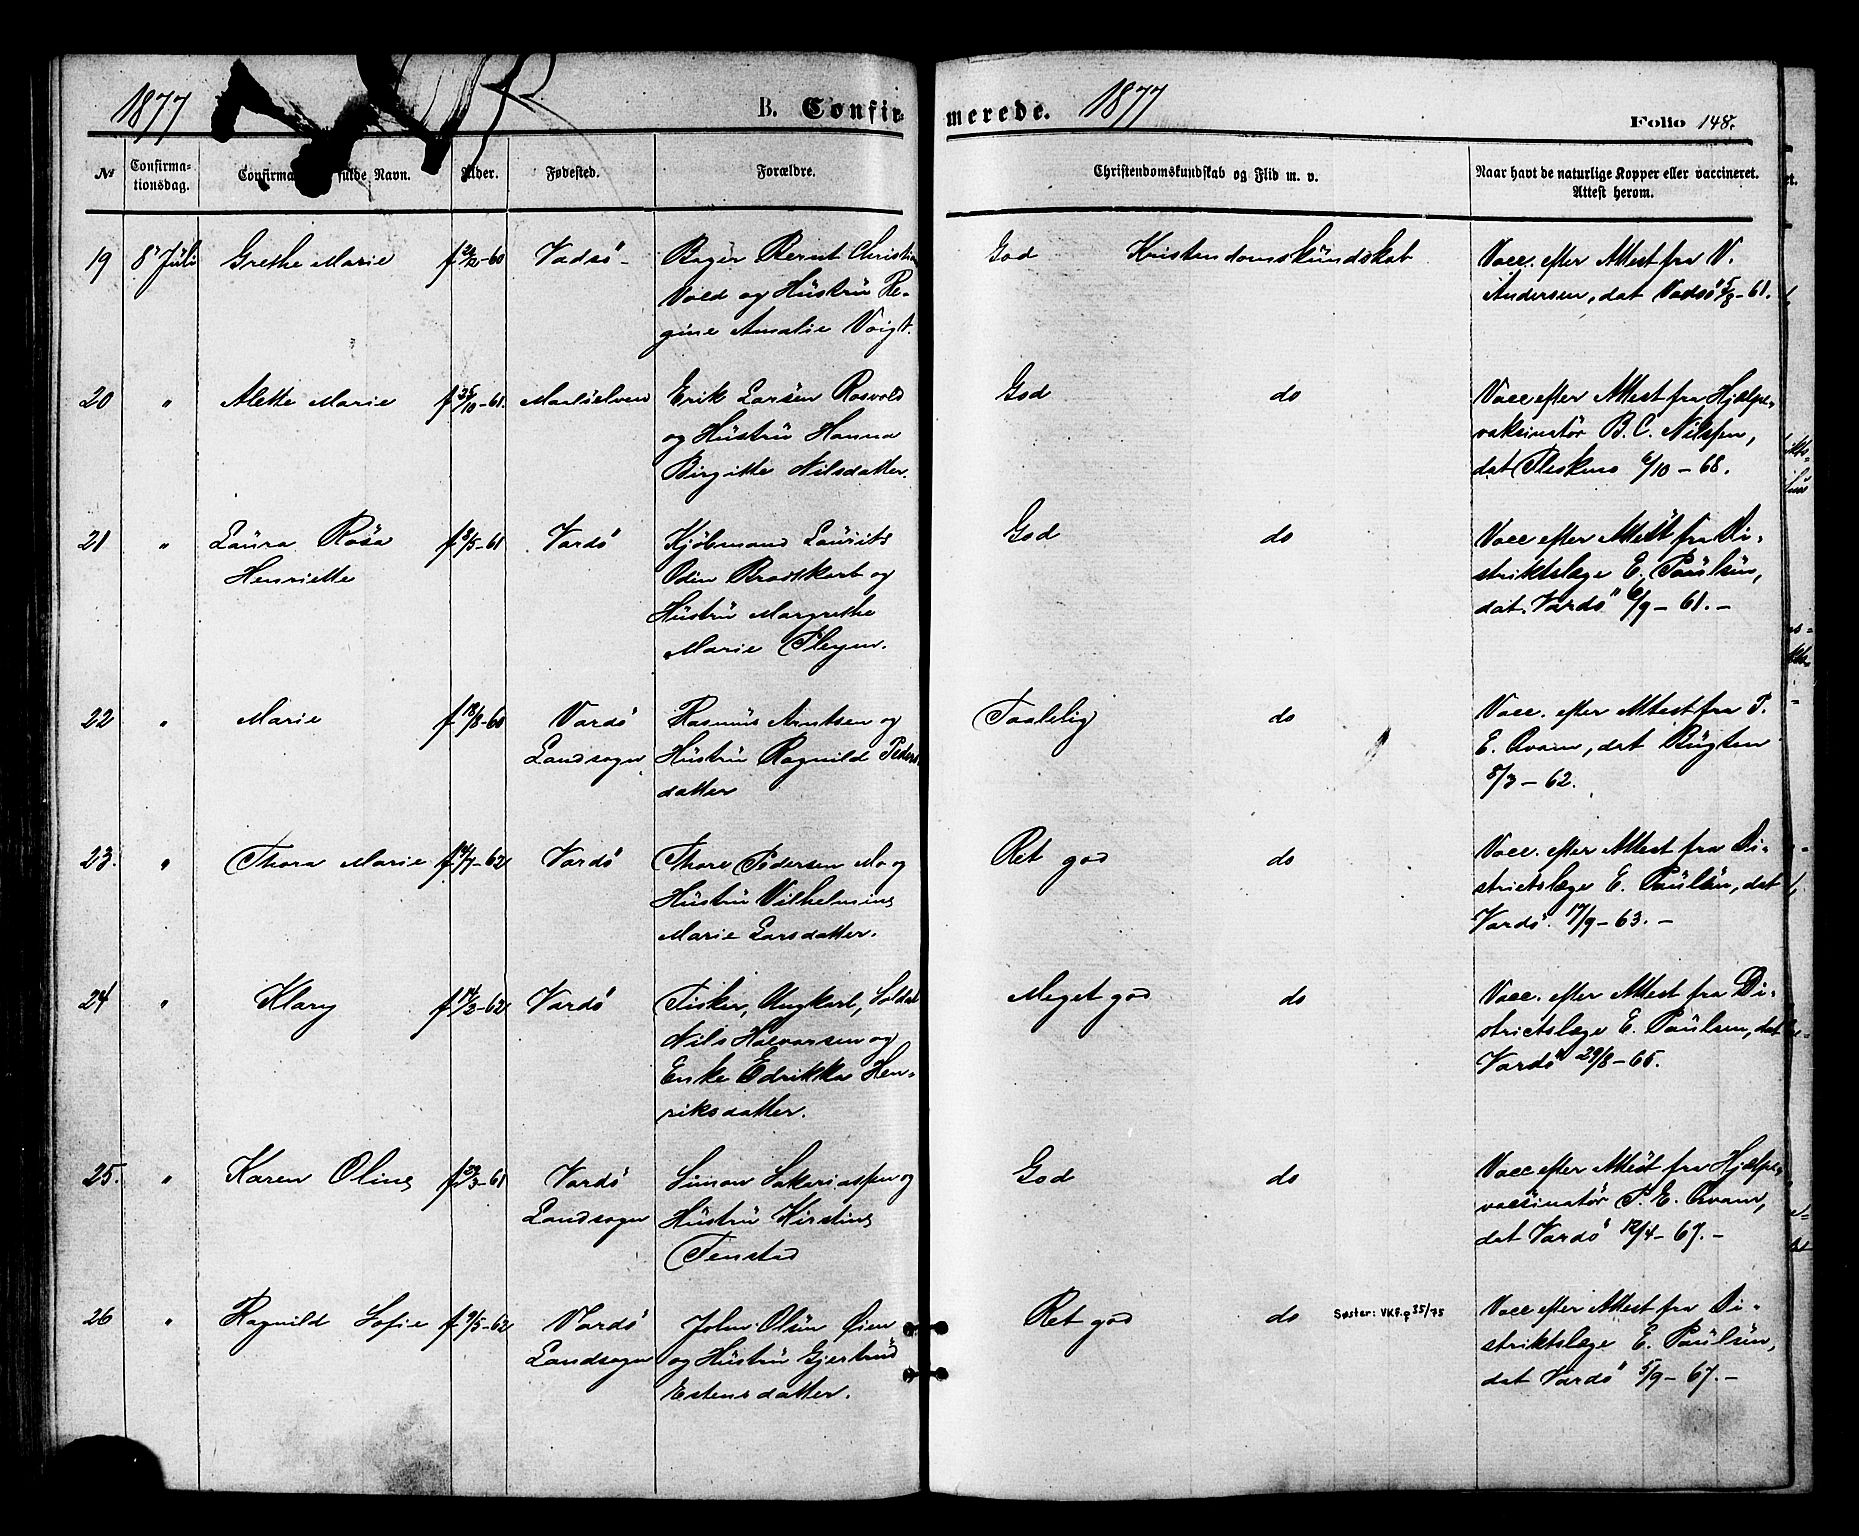 1877
B. Confir-
merede. 1877
Folio 148.
No
Confirma-
tionsdag.
Navn.
Alder.
Fødested.
Forældre.
Christendomskundskab og Flid m. v.
Naar havt de naturlige Kopper eller vaccineret.
Attest herom.
19 8' Juli Grethe Marie Vadsö Bernt Christian
Vold og Hustru Re-
gine Amalie Voigt.
God Kristendomskundskab
Vacc. efter Attest fra V.
Andersen, dat Vadsö -61.
20 " Alette Marie f 25/10-61. Maalselven Erik Larsen Rosvold
og Hustru Hanna
Birgitte Nilsdatter.
God do
Vacc efter Attest fra Hjælpe-
vaksinatör B. C. Nilssen,
dat 6/10-68.
21 " Laura Rosa
Henriette
f 8/5-61 Vardö Kjöbmand Laurits
Odin Brodtkorb og
Hustru Margrethe
Marie Pleyen.
God do
Vacc efter Attest fra Di-
striktslæge E. Paulsen,
dat. Vardö 6/9-61.-
22 " Marie f 18/8-60 Vardö
Landsogn
Rasmus Arntsen og
Hustru Ragnild Peders
datter
Taalelig do
Vacc. efter Attest fra P.
E. Qvam, dat Bugten
8/3-62.
23. " Thora Marie f 14/7-62 Vardö Thore Pedersen Mo og
Hustru Vilhelmine
Marie Larsdatter.
Ret god do
Vacc. efter Attest fra Di-
strictslæge E. Paulsen, dat
Vardö 17/9-63.-
24 " Klary f 14/3-62 Vardö Fisker, Ungkarl, Soldat
Nils Halvorsen og
Enke Edrikka Hen-
riksdatter.
Meget god do
Vacc. efter Attest fra Di-
strictslæge E. Paulsen, dat
Vardö 29/8-65.
25. " Karen Oline f 23/3-61 Vardö
Landsogn
Simon Sakeriassen og
Hustru Kirstine
Fenstad
God do
Vacc efter Attest fra Hjælpe-
vaccinatör P. E. Qvam,
dat Vardö 12/4-67.-
26 " Ragnild Sofie f 9/5-62 Vardö
Landsogn
John Olsen Øien
og Hustru Gjertrud
Estensdatter.
Ret god do Søster: VKF.p 35/75
Vacc efter Attest fra Di-
striktslæge E. Paulsen,
dat Vardö 5/9-67.-